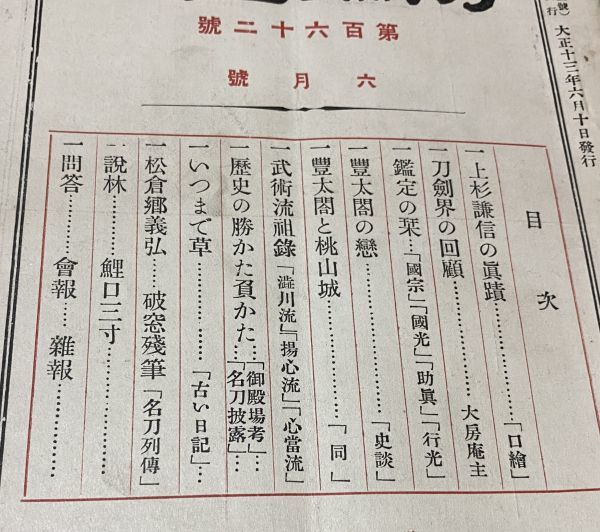 第百六十二號
六月號
大正十三年六月十日發行
目次
一上杉謙信の眞蹟…………「口繪」
一刀劍界の回顧…………大房庵主
一鑑定の栞…「國宗」「國光」「助眞」「行光」
一豐太閤の戀…………「史談」
一豐太閤と桃山城…………「同」
一武術流祖錄「澁川流」「揚心流」「心當流」
一歷史の勝かた負かた…「御殿場考」…「名刀披露」…
一いつまで草…………「古い日記」…
一松倉鄕義弘……破窓殘筆「名刀列傳」
一說林…………鯉口三寸
一問答…………會報……雜報…………